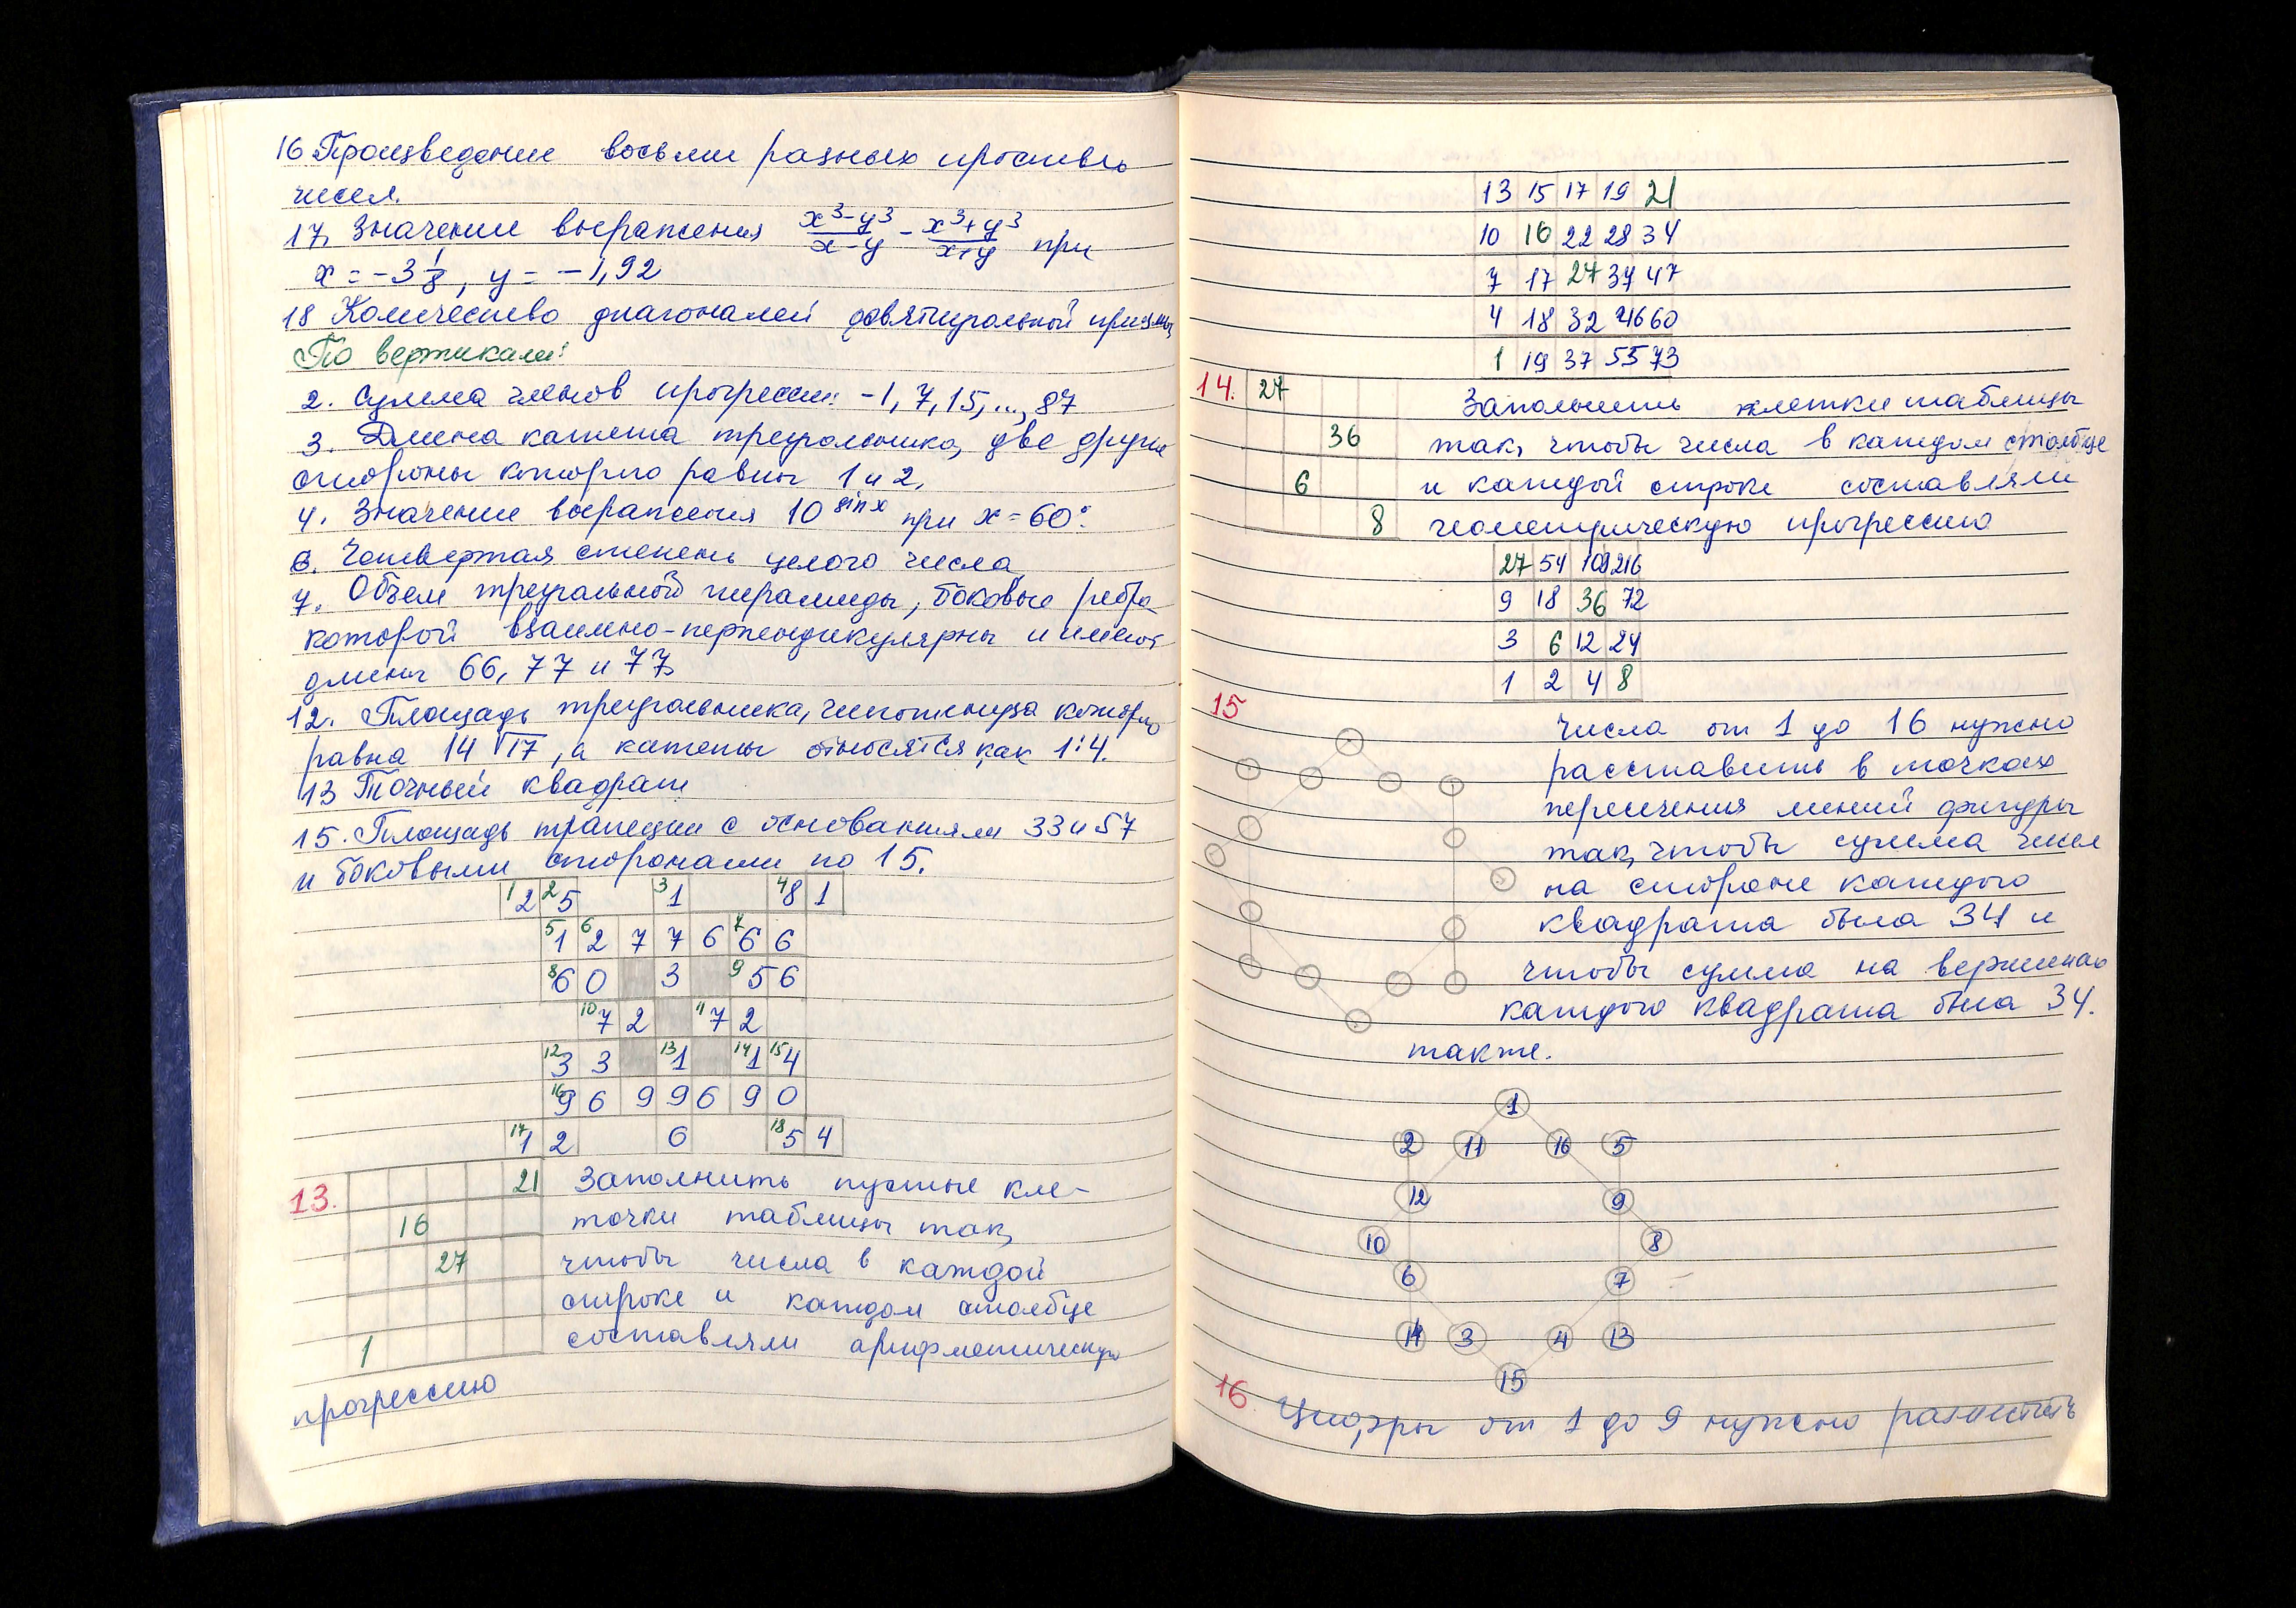 16 Произведение восьми разных простых
чисел.
17. Значение выражения x³-y³/x-y - x³+y³/x+y при
x = -3 1/8, y = -1,92
18 Количество диагоналей девятиугольной призмы
По вертикали:
2. Сумма членов прогрессии: -1, 7, 15, ..., 87
3. Длина катета треугольника, две другие
стороны которого равны 1 и 2.
4. Значение выражения 10 sin x при x = 60°.
6. Четвертая степень целого числа
7. Объем треугольной пирамиды, боковые ребра
которой взаимно-перпендикулярны и имеют
длины 66, 77 и 77.
12. Площадь треугольника, гипотенуза которого
равна 14 √17, а катеты относятся как 1:4.
13 Точный квадрат
15. Площадь трапеции с основаниями 33 и 57
и боковыми сторонами по 15.
1 2 2 5 3 1 4 8 1
5 1 6 2 7 7 6 7 6 6
8 6 0 3 9 5 6
10 7 2 11 7 2
12 3 3 13 1 14 1 15 4
16 9 6 9 9 6 9 0
17 1 2 6 18 5 4
13. 21 Заполнить пустые кле-
16 точки таблицы так,
27 чтобы числа в каждой
строке и каждом столбце
1 составляли арифметическую
прогрессию
13 15 17 19 21
10 16 22 28 34
7 17 27 37 47
4 18 32 46 60
1 19 37 55 73
14. 27 Заполнить клетки таблицы
36 так, чтобы числа в каждом столбце
6 и каждой строке составляли
8 геометрическую прогрессию
27 54 108 216
9 18 36 72
3 6 12 24
1 2 4 8
15 Числа от 1 до 16 нужно
расставить в точках
пересечения линий фигуры
так, чтобы сумма чисел
на стороне каждого
квадрата была 34 и
чтобы сумма на вершинах
каждого квадрата была 34.
также.
1
2 11 16 5
12 9
10 8
6 7
14 3 4 13
15
16. Цифры от 1 до 9 нужно разместить